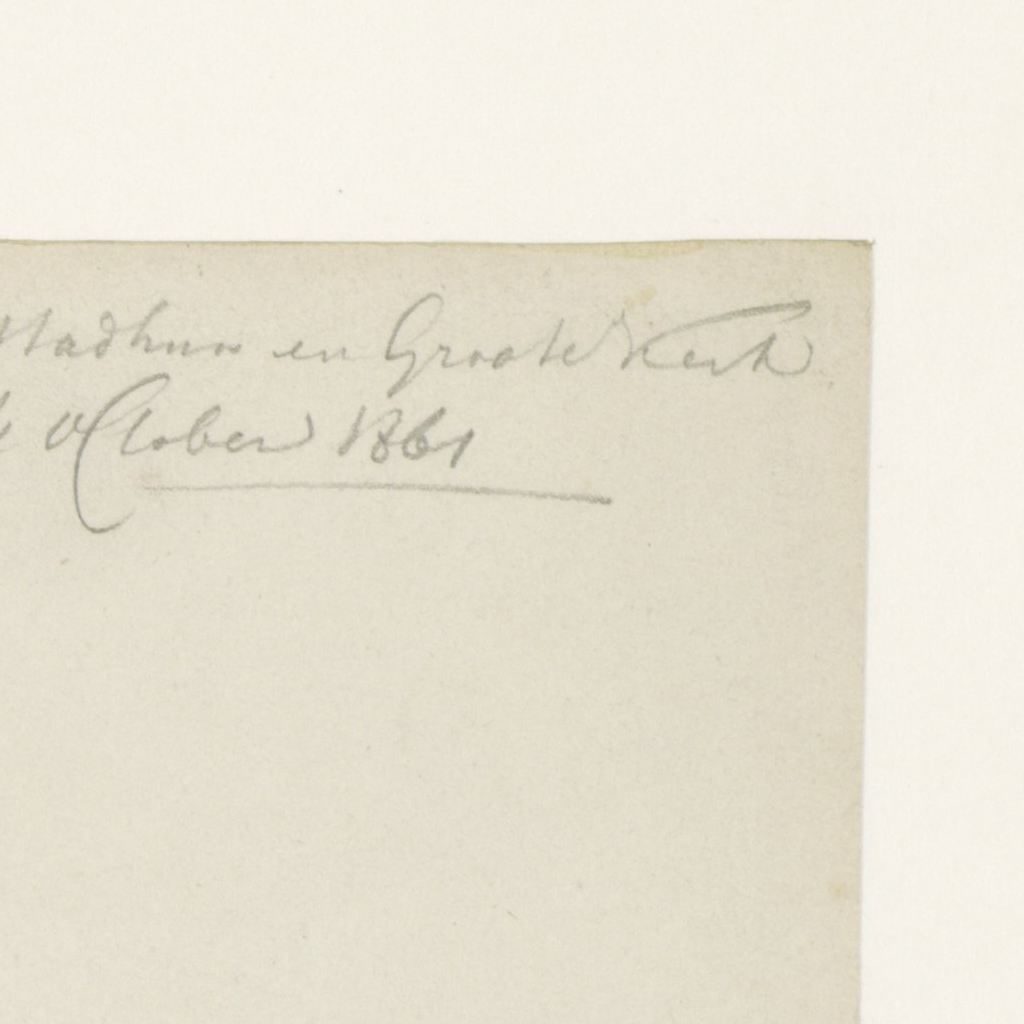 Stadhuis en Groote Kerk
October 1861